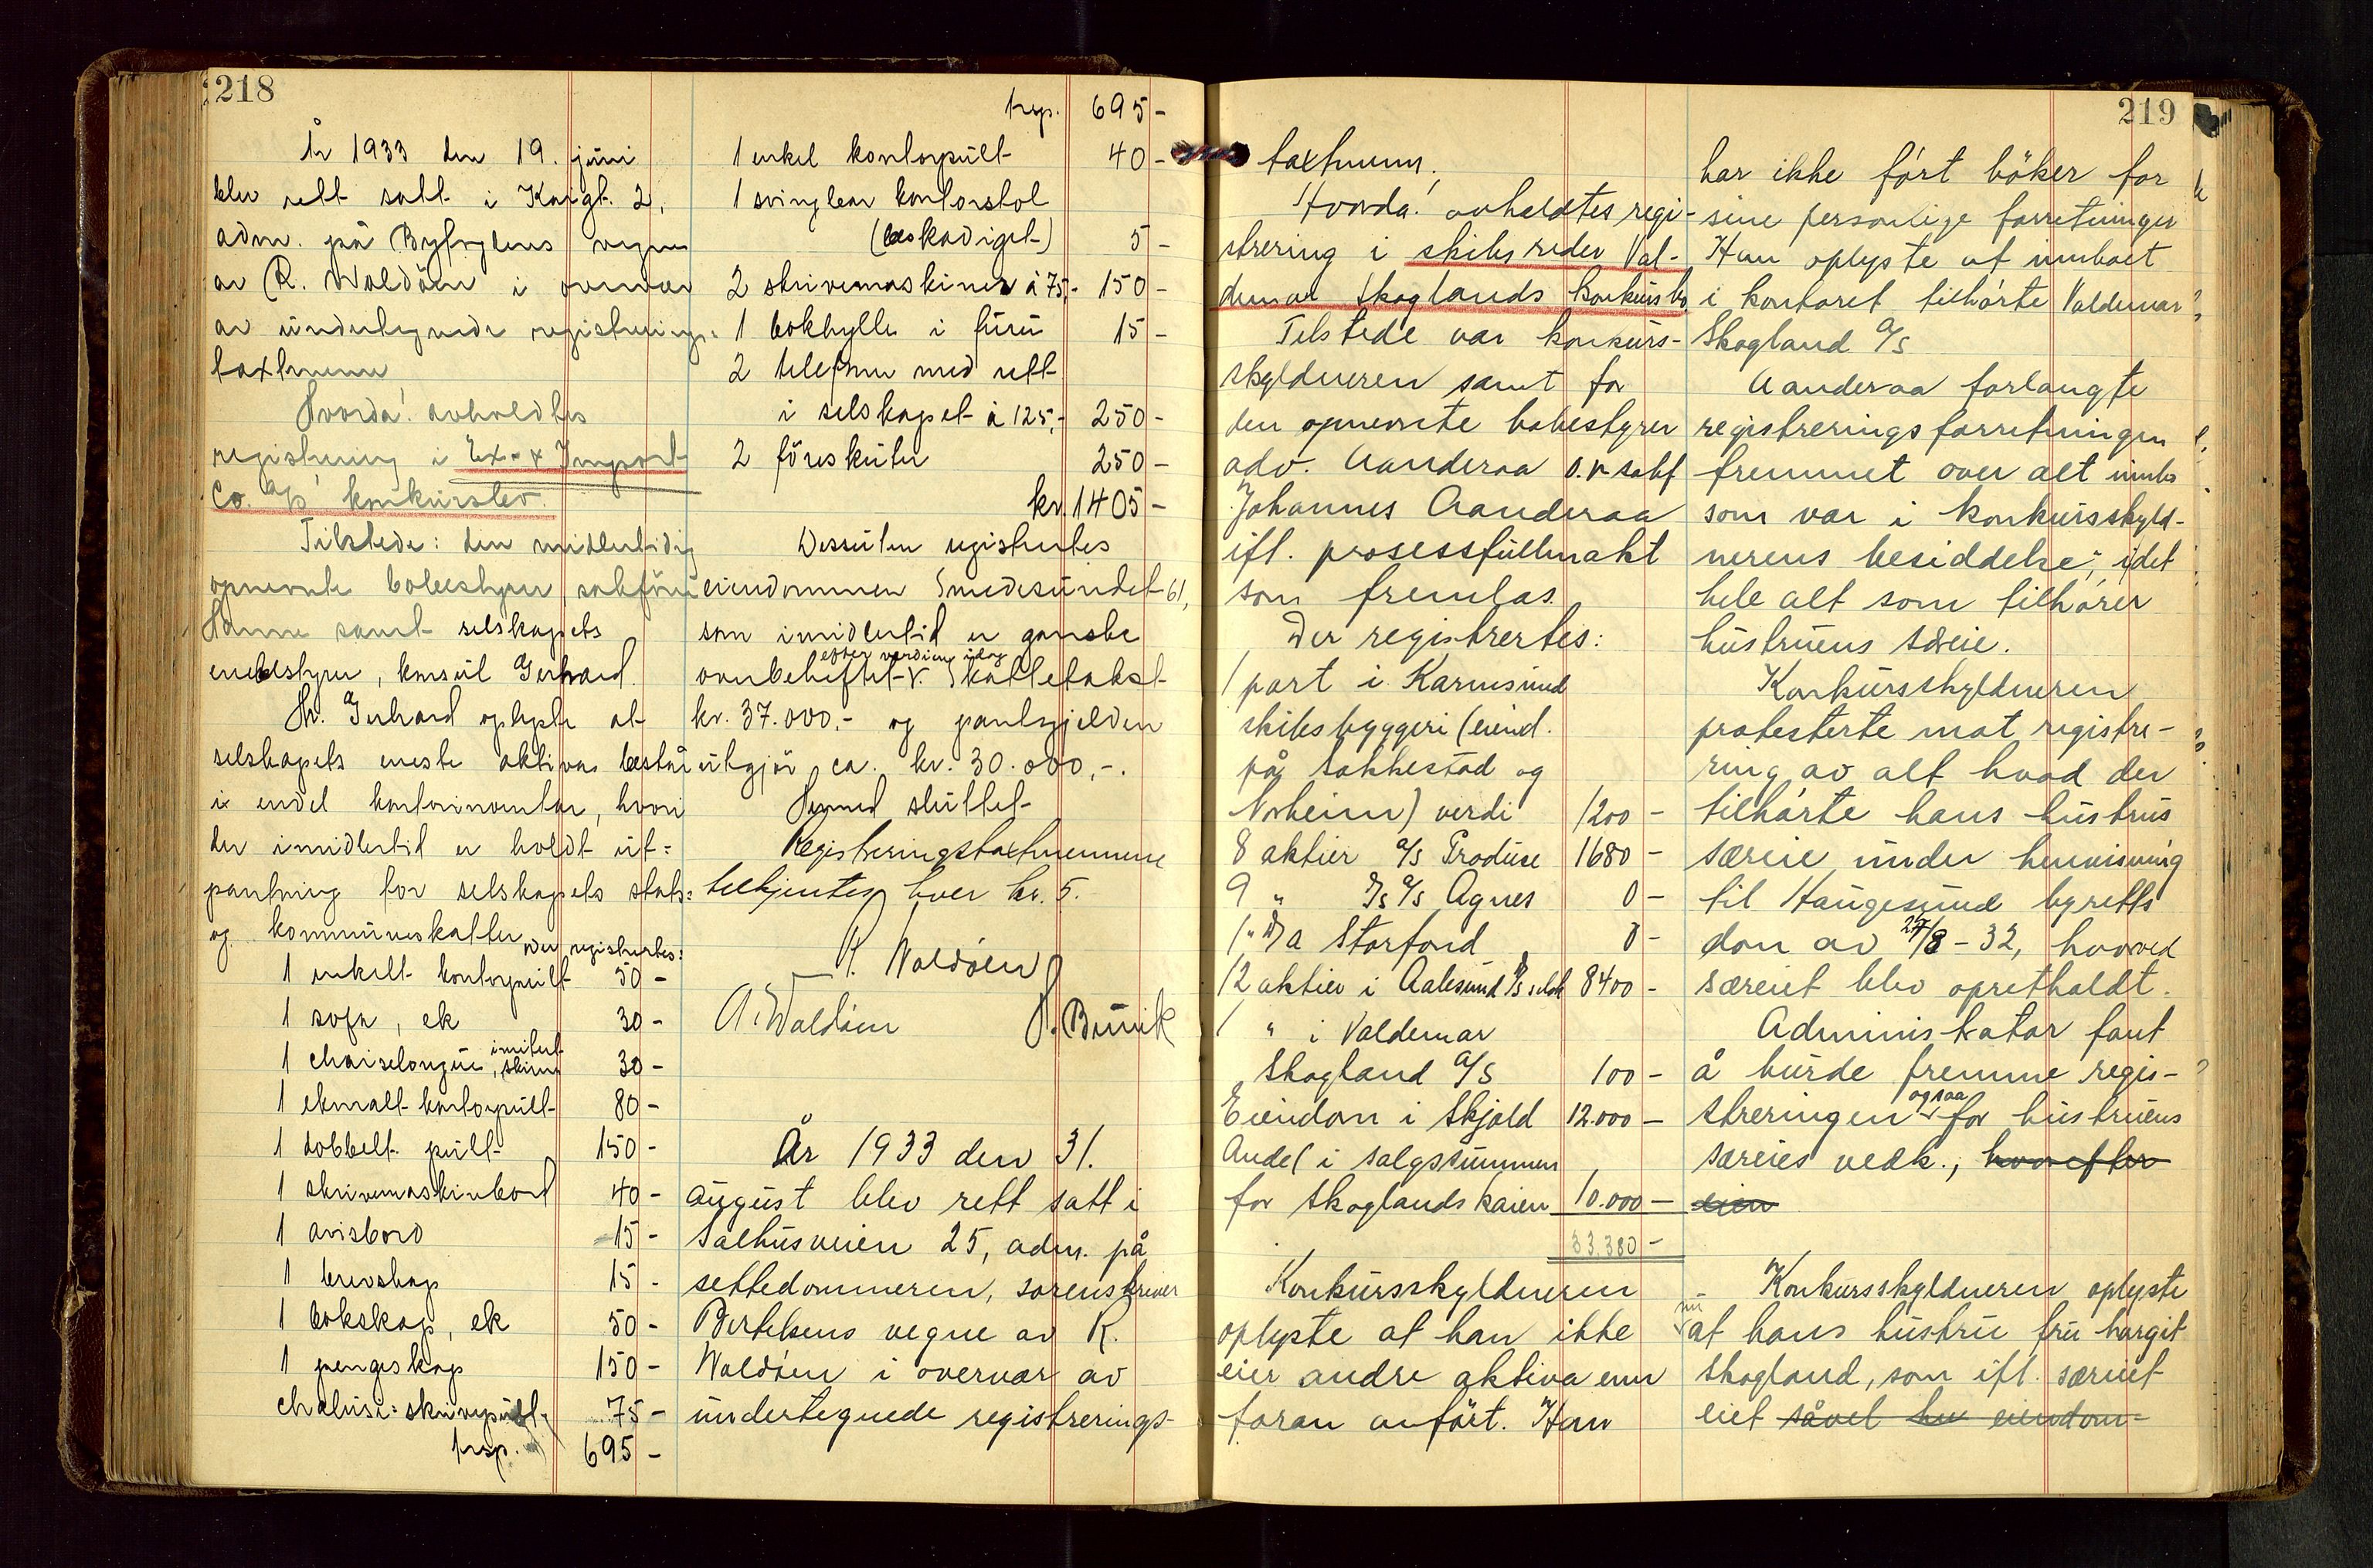 218
År 1933 den 19. juni
blev rett satt i Kaigt. 2,
adm. på Byfogdens vegne
av R. Waldöen i overvær
av undertegnede registrerings=
taxtmenn
Hvorda! avholdtes
registrering i Ex- & Import
Co. A/S' konkursbo.
Tilstede: den midlertidig
opnevnte bobestyrer, sakfører
samt selskapets
enebestyrer, konsul Gerhard.
Hr. Gerhard oplyste at
selskapets eneste aktiva består
i endel kontorinventar, hvori
der imidlertid er holdt ut=
pantning for selskapets stats=
og kommuneskatter
Der registrertes:
1 enkelt kontorpult 50 -
1 sofa, ek 30 -
1 chaiselongue, imitert skinn 30 -
1 ekmalt kontorpult 80 -
1 dobbelt pult 150 -
1 skrivemaskinbord 40 -
1 avisbord 15 -
1 brevskap 15 -
1 bokskap, ek 50 -
1 pengeskap 150 -
chalusi=skrivepult 75 -
trsp. 695 -
trsp. 695 -
1 enkel kontorpult 40 -
1 svingbar kontorstol
(beskadiget) 5 -
2 skrivemaskiner à 75,- 150 -
1 bokhylle i furu 15 -
2 telefoner med rett
i selskapet à 125,- 250 -
2 föreskuter 250 -
kr. 1405 -
Dessuten registrertes
eiendommen Smedesundet 61,
som imidlertid er ganske
overbeheftet efter verdien idag. Skattetakst
kr. 37.000,- og pantegjelden
utgjör ca. kr. 30.000,-.
Dermed sluttet
Registreringstaxtmennene
tilkjentes hver kr. 5.
R. Waldöen
A. Waldöen H. Bunik
År 1933 den 31.
august blev rett satt i
Salhusveien 25, adm. på
settedommeren, sorenskriver
Bertelsens vegne av R.
Waldöen i overvær av
undertegnede registrerings-
219
taxtmenn.
Hvorda! avholdtes regi-
strering i skibsreder Val-
demar Skoglands konkursbo.
Tilstede var konkurs-
skyldneren samt for
den opnevnte bobestyrer
adv. Aanderaa o.r.sakf
Johannes Aanderaa
ifl. prosessfullmakt
som fremlas.
Der registrertes:
1 part i Karmsund
skibsbyggeri (eiend.
på Sakkestad og
Norheim) verdi 1200 -
8 aktier A/S Produse 1680 -
9 " A/S Agnes 0 -
1 " Da Storfond 0 -
12 aktier i Aalesund 8400 -
1 " i Valdemar
Skogland A/S 100 -
Eiendom i Skjold 12.000 -
Andel i salgssummen
for Skoglandskaien 10.000 -
33.380 -
Konkursskyldneren
oplyste at han ikke
eier andre aktiva enn
foran anfört. Han
har ikke fört böker for
sine personlige forretninger
Han oplyste at innboet
i kontoret tilhörte Valdemar
Skogland A/S
Aanderaa forlangte
registreringsforretningen
fremmet over alt innbo
som var i konkursskyld-
nerens besiddelse, idet
hele alt som tilhörer
hustruens særeie.
Konkursskyldneren
protesterte mot registre-
ring av alt hvad der
tilhörte hans hustrus
særeie under henvisning
til Haugesund byretts
dom av 27/8 - 32, hvorved
særeiet blev oprettholdt.
Administrator fant
å burde fremme regis-
streringen ogsaa for hustruens
særeies vedk., hvorefter
eien
Konkursskyldneren oplyste
nu at hans hustru fru Margit
Skogland, som ifl. særeiet
eiet såvel hu eiendom=